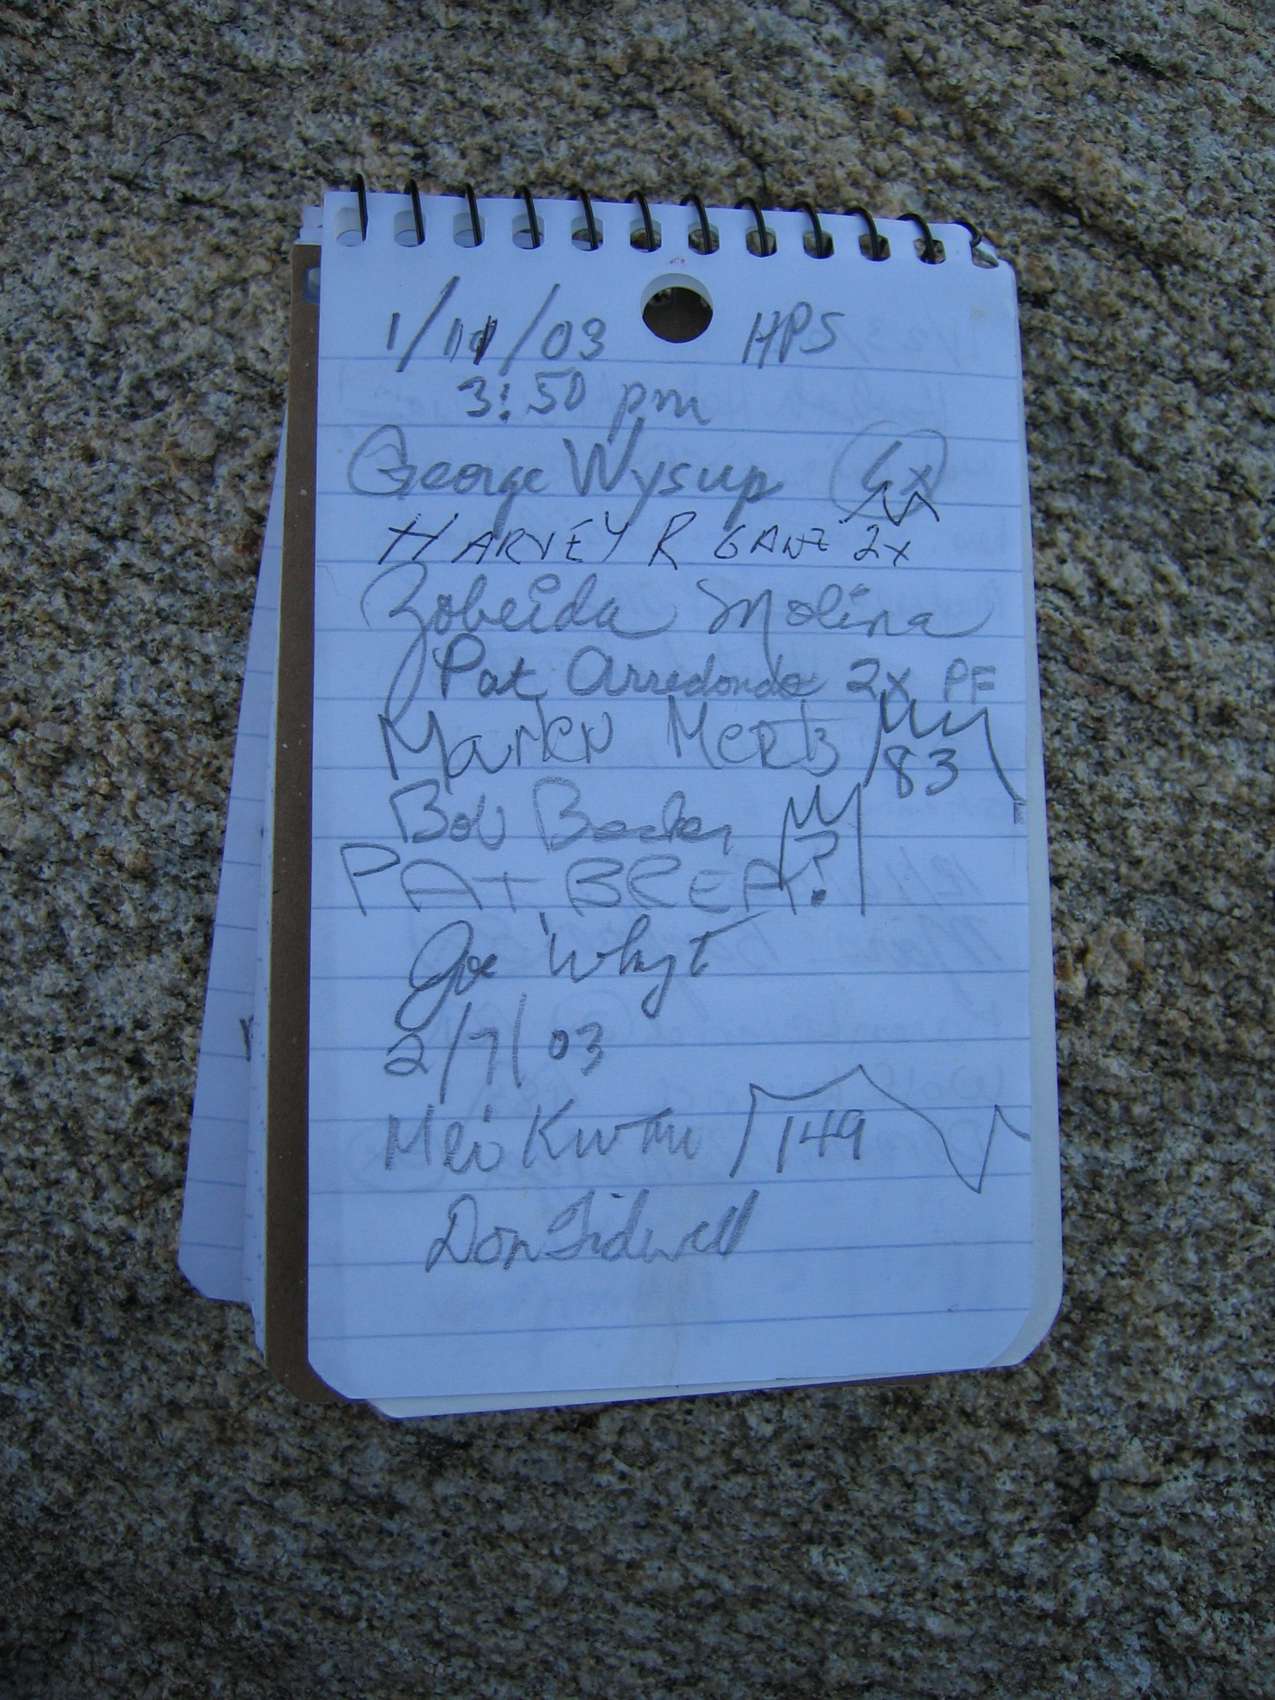 1/11/03 HPS
3:50 pm
George Wysup 6x
HARVEY R GANZ 2x
Zobeida Molina
Pat Arredondo 2x PF
Marlen Mertz 83
Bob Becker
PAT BREA?
Joe Whyt
2/7/03
Mei Kwan 149
Don Tidwell